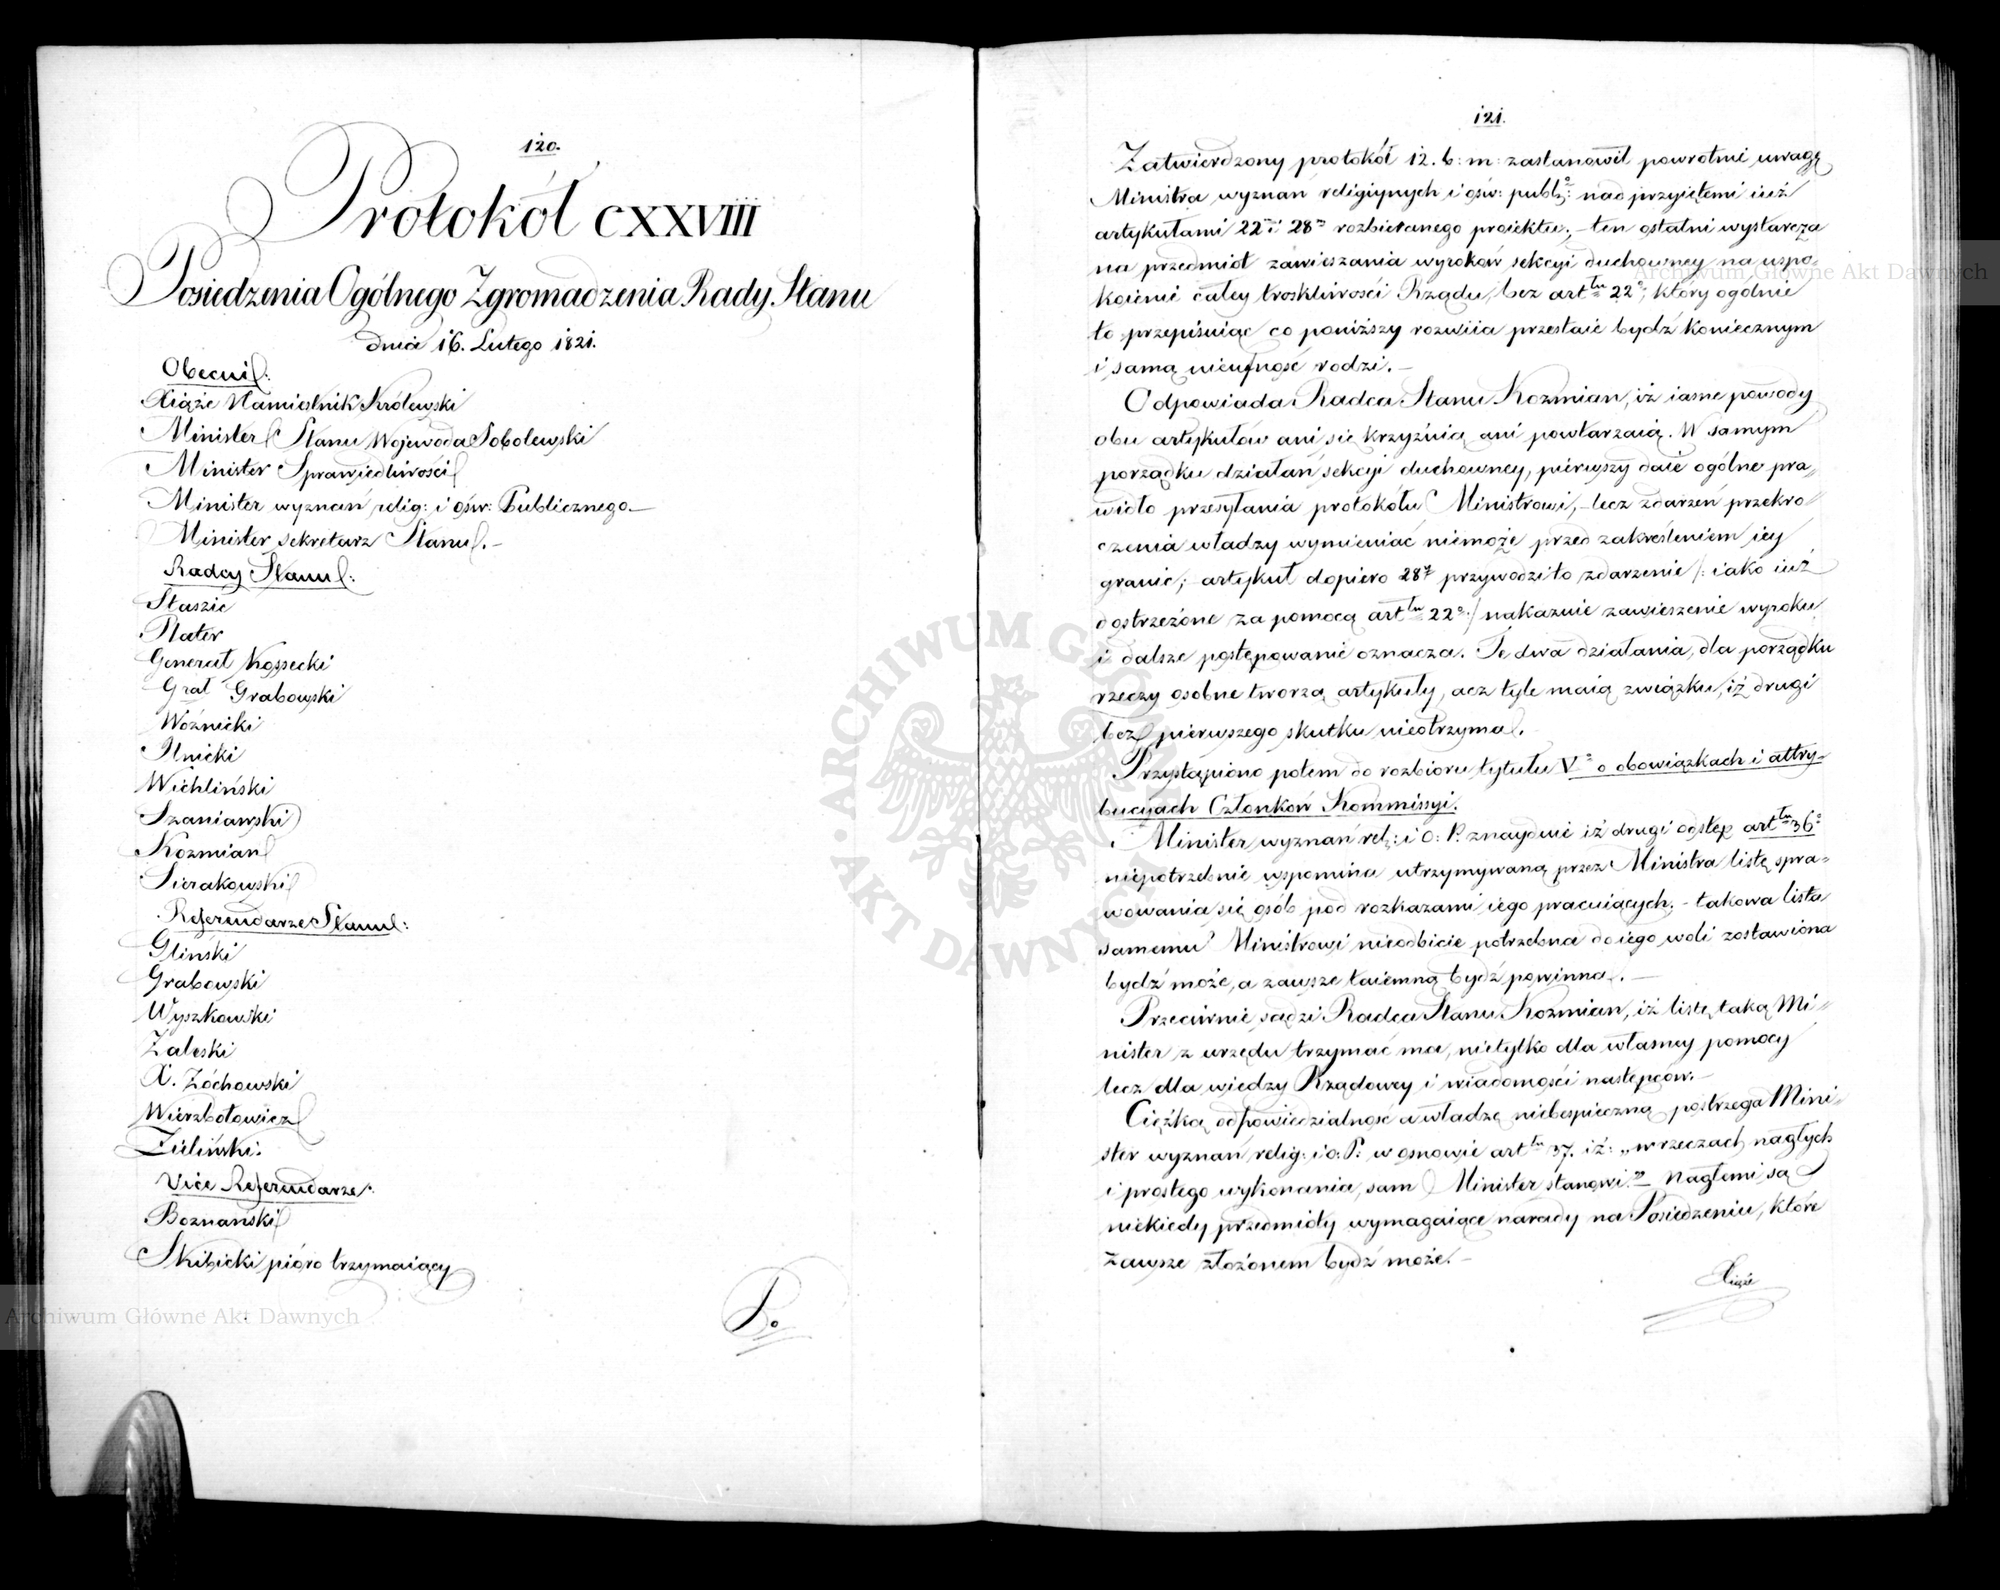 120.
Protokół CXXVIII
Posiedzenia Ogólnego Zgromadzenia Rady Stanu
dnia 16. Lutego 1821.
Obecni:
Xiąże Namiestnik Królewski
Minister Stanu Wojewoda Sobolewski
Minister Sprawiedliwości
Minister wyznań relig: i ośw: Publicznego.—
Minister sekretarz Stanu.—
Radcy Stanu:
Staszic
Plater
Generał Kossecki
Grał Grabowski
Woźnicki
Ilnicki
Wichliński
Szaniawski
Kozmian
Sierakowski
Referendarze Stanu:
Gliński
Grabowski
Wyszkowski
Zaleski
X. Żóchowski
Wierzbołowicz
Zieliński.
Vice Referendarze:
Boznański
Skibicki pióro trzymaiący
Po
121.
Zatwierdzony protokół 12. b: m: zastanowił powrotnie uwagę
Ministra wyznań religiynych i ośw: publo: nad przyiętemi iuż
artykułami 22m i 28m rozbieranego proiektu; – ten ostatni wystarcza
na przedmiot zawieszania wyroków sekcyi duchowney na uspo-
koienie całey troskliwości Rządu, bez arttu 22o, który ogólnie
to przepisuiąc co poniższy rozwiia przestaie bydź koniecznym
i samą nieufność rodzi.—
Odpowiada Radca Stanu Kozmian, iż iasne powody
obu artykułów ani się krzyżuią ani powtarzaią. W samym
porządku działań sekcyi duchowney, pierwszy daie ogólne pra-
widło przesyłania protokółu Ministrowi, – lecz zdarzeń przekro-
czenia władzy wymieniać niemoże przed zakreśleniem iey
granic; – artykuł dopiero 28y przywodzi to zdarzenie /: iako iuż
dostrzeżone za pomocą arttu 22o :/ nakazuie zawieszenie wyroku
i dalsze postępowanie oznacza. Te dwa działania, dla porządku
rzeczy osobne tworzą artykuły, acz tyle maią związku, iż drugi
bez pierwszego skutku nieotrzyma.
Przystąpiono potem do rozbioru tytułu Vo o obowiązkach i attry-
bucyach Członków Kommissyi.
Minister wyznań rel: i O: P. znayduie iż drugi odstęp arttu 36o
niepotrzebnie wspomina utrzymywaną przez Ministra listę spra-
wowania się osób pod rozkazami iego pracuiących; – takowa lista
samemu Ministrowi nieodbicie potrzebna do iego woli zostawiona
bydź może, a zawsze taiemną bydź powinna.—
Przeciwnie sądzi Radca Stanu Kozmian, iż listę taką Mi-
nister z urzędu trzymać ma, nietylko dla własney pomocy
lecz dla wiedzy Rządowey i wiadomości następców.—
Ciężką odpowiedzialność a władzę niebespieczną postrzega Mini-
ster wyznań relig: i o: P: w osnowie arttu 37. iż: „w rzeczach nagłych
i prostego wykonania, sam Minister stanowi." Nagłemi są
niekiedy przedmioty wymagaiące narady na Posiedzeniu, które
zawsze złożonem bydź może.—
Xiąże
Archiwum Główne Akt Dawnych
Archiwum Główne Akt Dawnych
ARCHIWUM GŁÓWNE AKT DAWNYCH